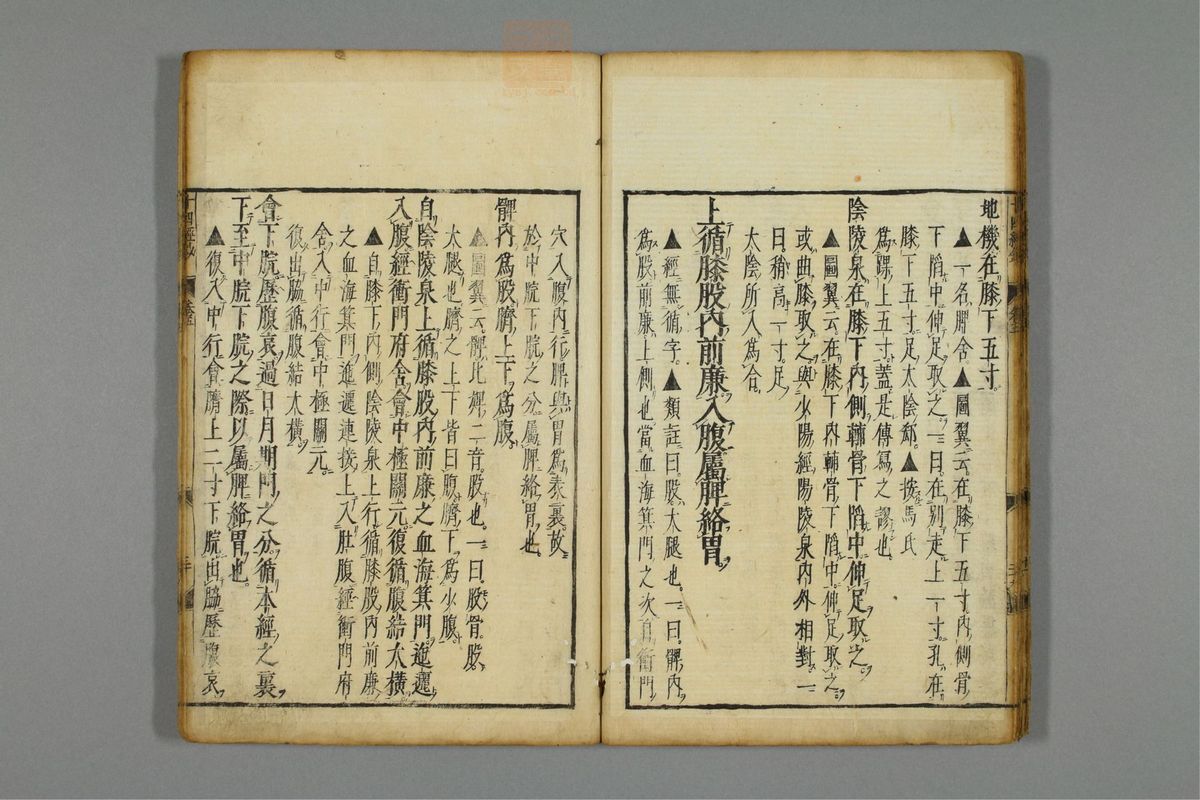 地機在膝下五寸
▲一名脾舍▲圖翼云在膝下五寸内側骨
下陷中伸足取之一曰在別走上一寸孔在
膝下五寸足太陰郄▲按馬氏
為踝上五寸蓋是傳寫之謬也
陰陵泉在膝下内側輔骨下陷中伸足取之
▲圖翼云在膝下内輔骨下陷中伸足取之
或曲膝取之與少陽經陽陵泉内外相對一
曰稍高一寸足
太陰所入為合
上循膝股内前廉入腹屬脾絡胃
▲經無循字▲類註曰股大腿也一曰髀内
為股前廉上側也當血海箕門之次自衝門
穴入腹内行脾與胃為表裏故
於中脘下脘之分屬脾絡胃也
髀内為股臍上下為腹
▲圖翼云髀比婢二音股也一曰股骨股
大腿也臍之上下皆曰腹臍下為少腹
自陰陵泉上循膝股内前廉之血海箕門迤邐
入腹經衝門府舍會中極關元復循腹結大横
▲自膝下内側陰陵泉上行循膝股内前廉
之血海箕門迤邐連接上入肚腹經衝門府
舍入中行會中極關元
復出脇循腹結太横
會下脘歷腹哀過日月期門之分循本經之裏
下至中脘下脘之際以屬脾絡胃也
▲復入中行會臍上二寸下脘出脇歷腹哀